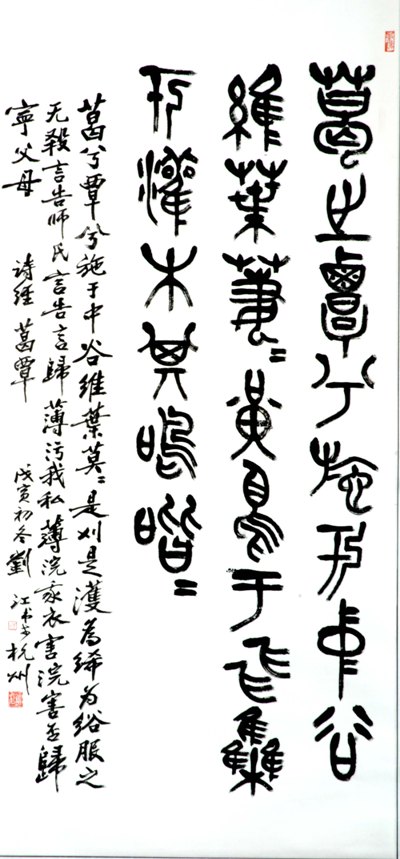 葛之覃兮施于中谷
維葉萋〻黃鳥于飛集
于灌木其鳴喈〻
葛兮覃兮施于中谷維葉莫〻是刈是濩為絺为綌服之
无斁言告師氏言告言歸薄污我私薄浣我衣害浣害否歸
寧父母 诗經葛覃 戊寅初冬劉江书于杭州